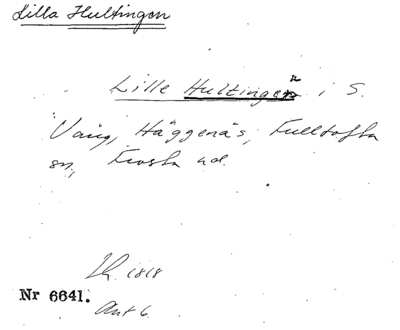 Lilla Hultingen
Lille Hultingen i S.
Vång, Häggenäs, Fulltofta
sn, Frosta hd.
Lh. 1818
Nr 6641.
Ant 6.